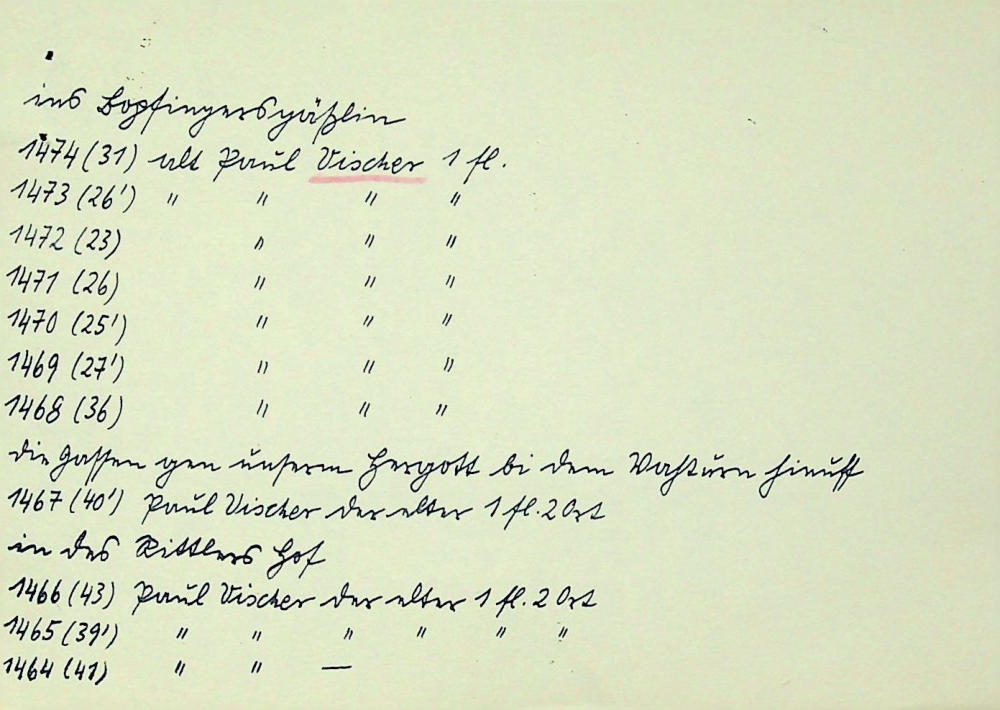 ins Bopfingersgäßlin
1474 (31) alt Paul Vischer 1 fl.
1473 (26') " " " "
1472 (23) " " "
1471 (26) " " "
1470 (25') " " "
1469 (27') " " "
1468 (36) " " "
die Gassen gen unserm Hergott bi dem Vachturn hinuff
1467 (40') Paul Vischer der elter 1 fl. 2 Ort
in des Rittlers Hof
1466 (43) Paul Vischer der elter 1 fl. 2 Ort
1465 (39') " " " " " "
1464 (41) " " —